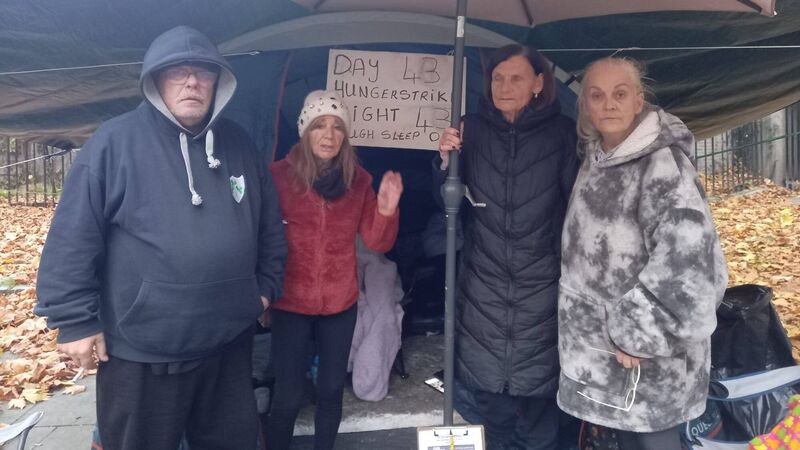 DAY 43
HUNGERSTRIK
IGHT 43
UGH SLEEP